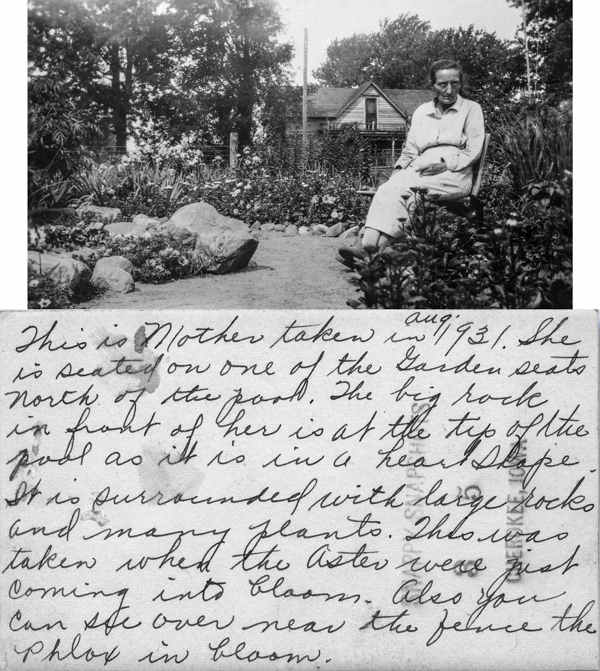 This is Mother taken in aug. 1931. She
is seated on one of the Garden seats
North of the pool. The big rock
in front of her is at the tip of the
pool as it is in a heart shape.
It is surrounded with large rocks
and many plants. This was
taken when the Aster were just
coming into bloom. Also you
can see over near the fence the
Phlox in bloom.
SNAPPY SNAPSHOTS
CHEROKEE, IOWA